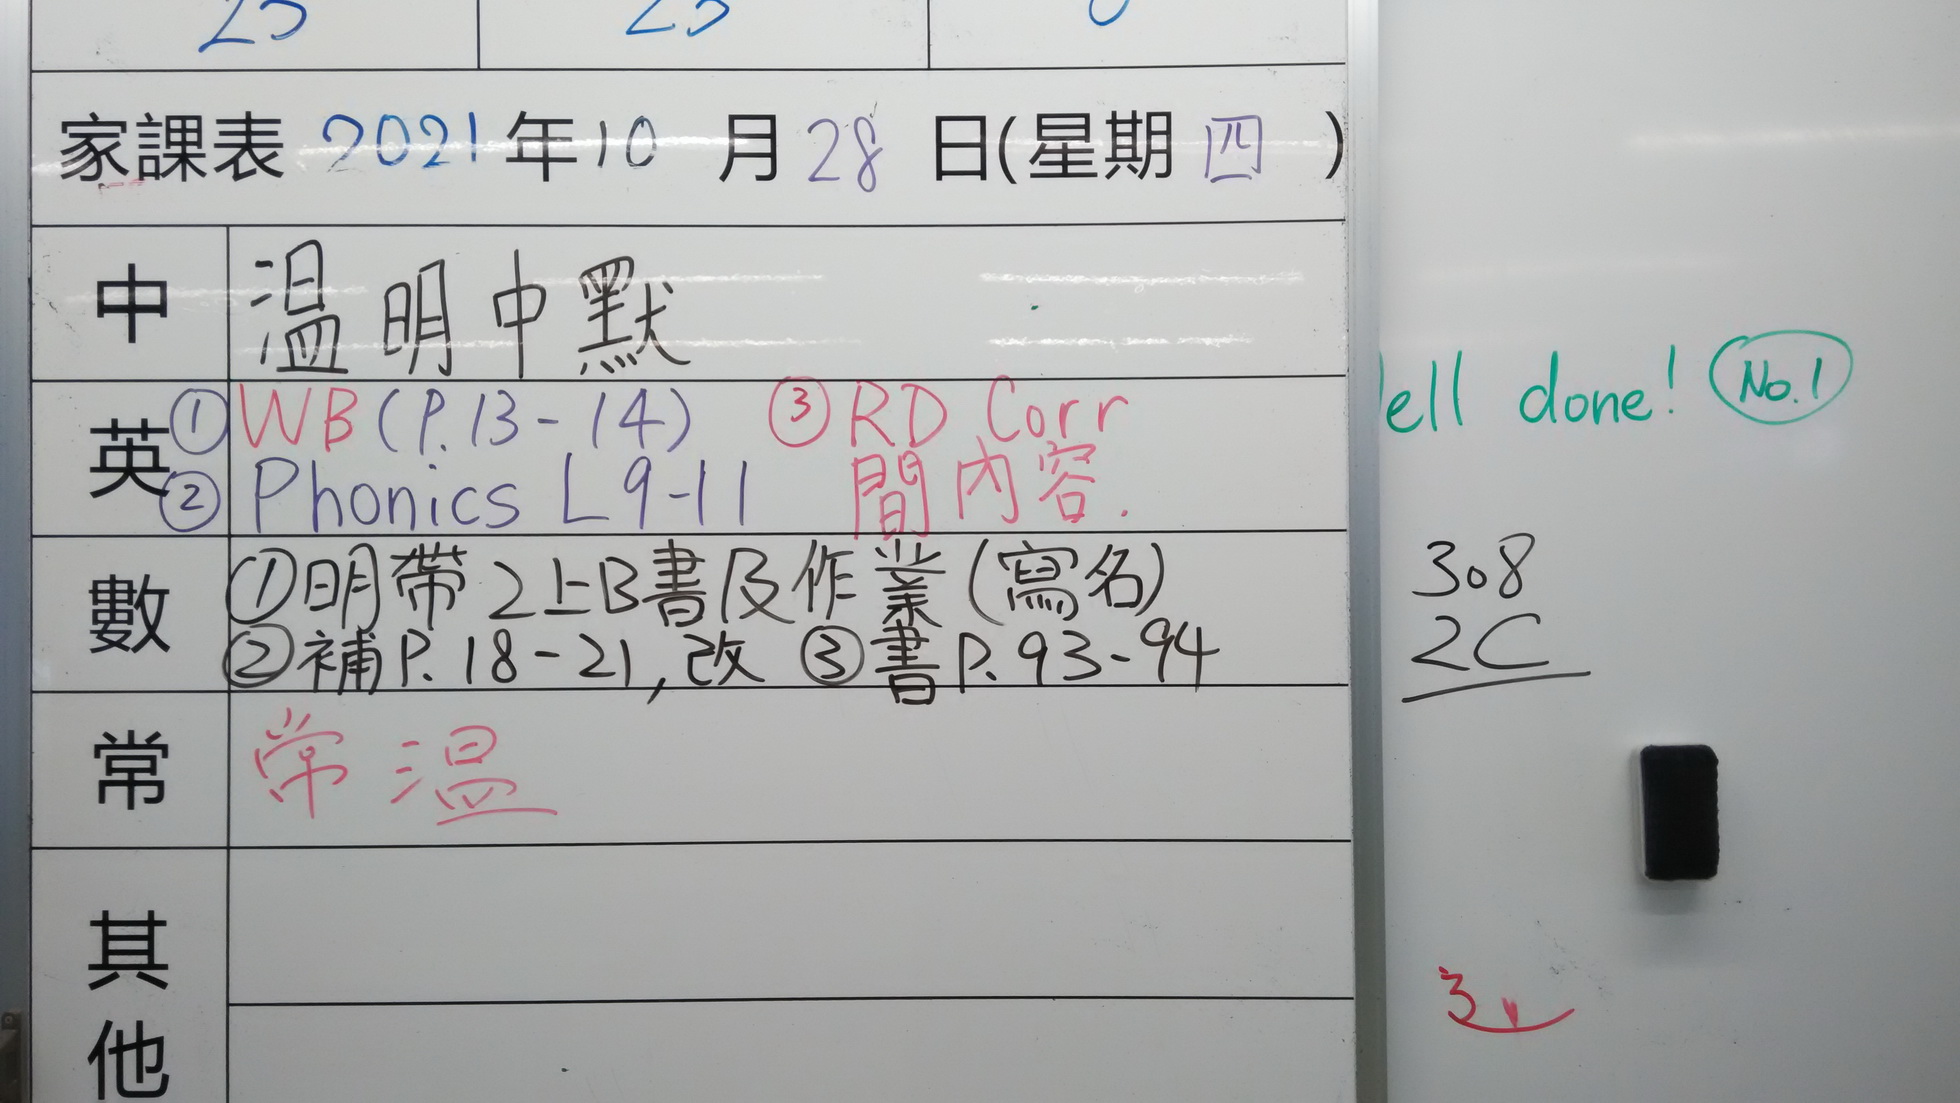 家課表 2021年10月28日(星期四)
中 温明中默
英 ①WB(P.13-14) ③RD Corr
②Phonics L9-11 間內容.
數 ①明帶2上B書及作業(寫名)
②補P.18-21,改 ③書P.93-94
常 常温
其他
ell done! No.1
308
2C
3